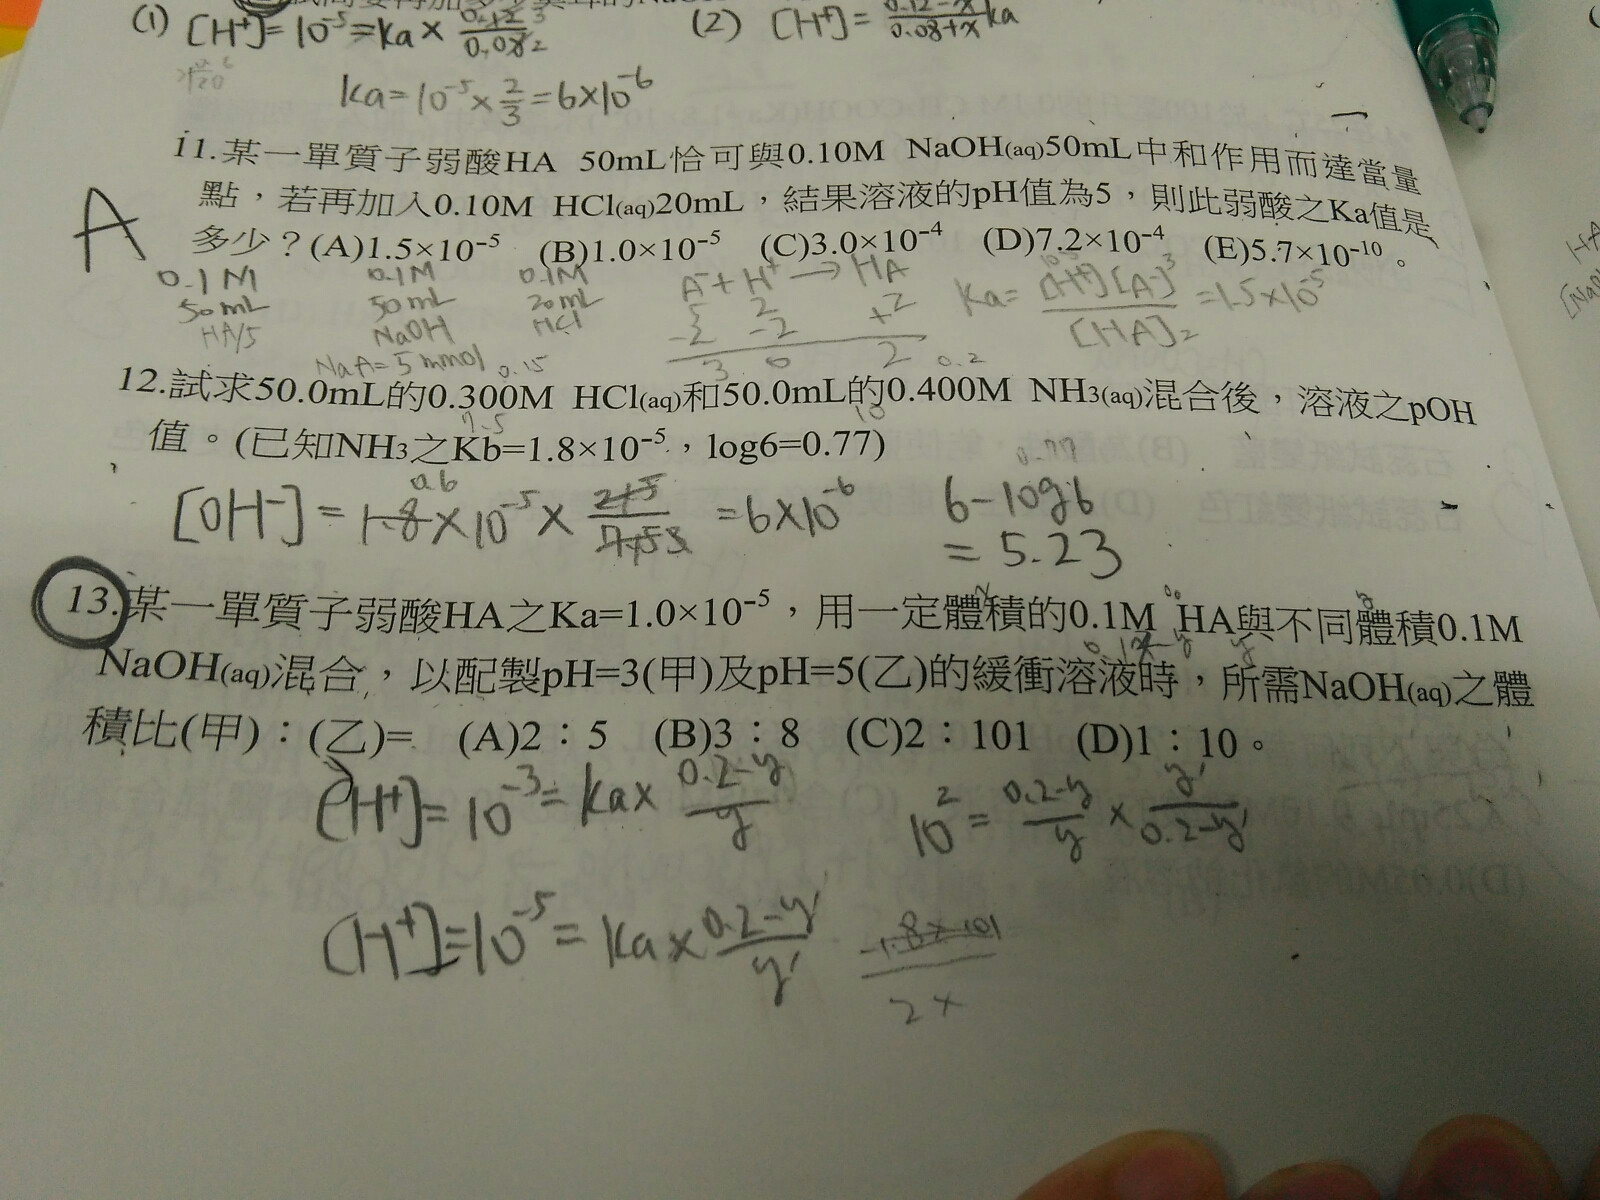 (1) [H⁺]=10⁻⁵=Ka× (2) [H⁺]= 0.12-x/0.08+x Ka
Ka=10⁻⁵×2/3=6×10⁻⁶
11.某一單質子弱酸HA 50mL恰可與0.10M NaOH(aq)50mL中和作用而達當量
點，若再加入0.10M HCl(aq)20mL，結果溶液的pH值為5，則此弱酸之Ka值是
A
多少？(A)1.5×10⁻⁵ (B)1.0×10⁻⁵ (C)3.0×10⁻⁴ (D)7.2×10⁻⁴ (E)5.7×10⁻¹⁰。
0.1M 0.1M 0.1M A⁻+H⁺→HA Ka=[H⁺][A⁻]3/[HA]2=1.5×10⁻⁵
50mL 50mL 20mL 5 2
HA/5 NaOH HCl -2 -2 +2
NaA=5mmol 3 0 2
0.15 0.2
12.試求50.0mL的0.300M HCl(aq)和50.0mL的0.400M NH3(aq)混合後，溶液之pOH
7.5 10
值。(已知NH3之Kb=1.8×10⁻⁵，log6=0.77)
0.6 0.77
[OH⁻]=1.8×10⁻⁵×2.5/7.53=6×10⁻⁶ 6-log6
=5.23
13.某一單質子弱酸HA之Ka=1.0×10⁻⁵，用一定體積的0.1M HA與不同體積0.1M
NaOH(aq)混合，以配製pH=3(甲)及pH=5(乙)的緩衝溶液時，所需NaOH(aq)之體
積比(甲)：(乙)= (A)2：5 (B)3：8 (C)2：101 (D)1：10。
[H⁺]=10⁻³=Ka×0.2-y/y 10²=0.2-y/y×y'/0.2-y'
[H⁺]=10⁻⁵=Ka×0.2-y'/y'
2x